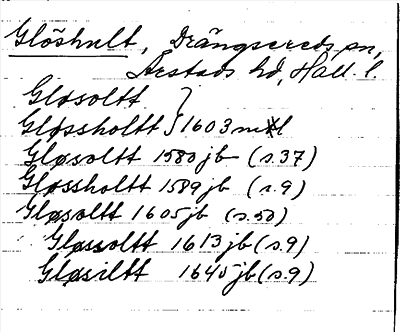 Glöshult, Drängsereds sn,
Årstads hd, Hall. l.
Gløsoltt
Gløssholtt } 1603 mtl
Gløsoltt 1580 jb (s. 37)
Gløssholtt 1589 jb (s. 9)
Gløsoltt 1605 jb (s. 50)
Gløssoltt 1613 jb (s. 9)
Gløsiltt 1645 jb (s. 9)